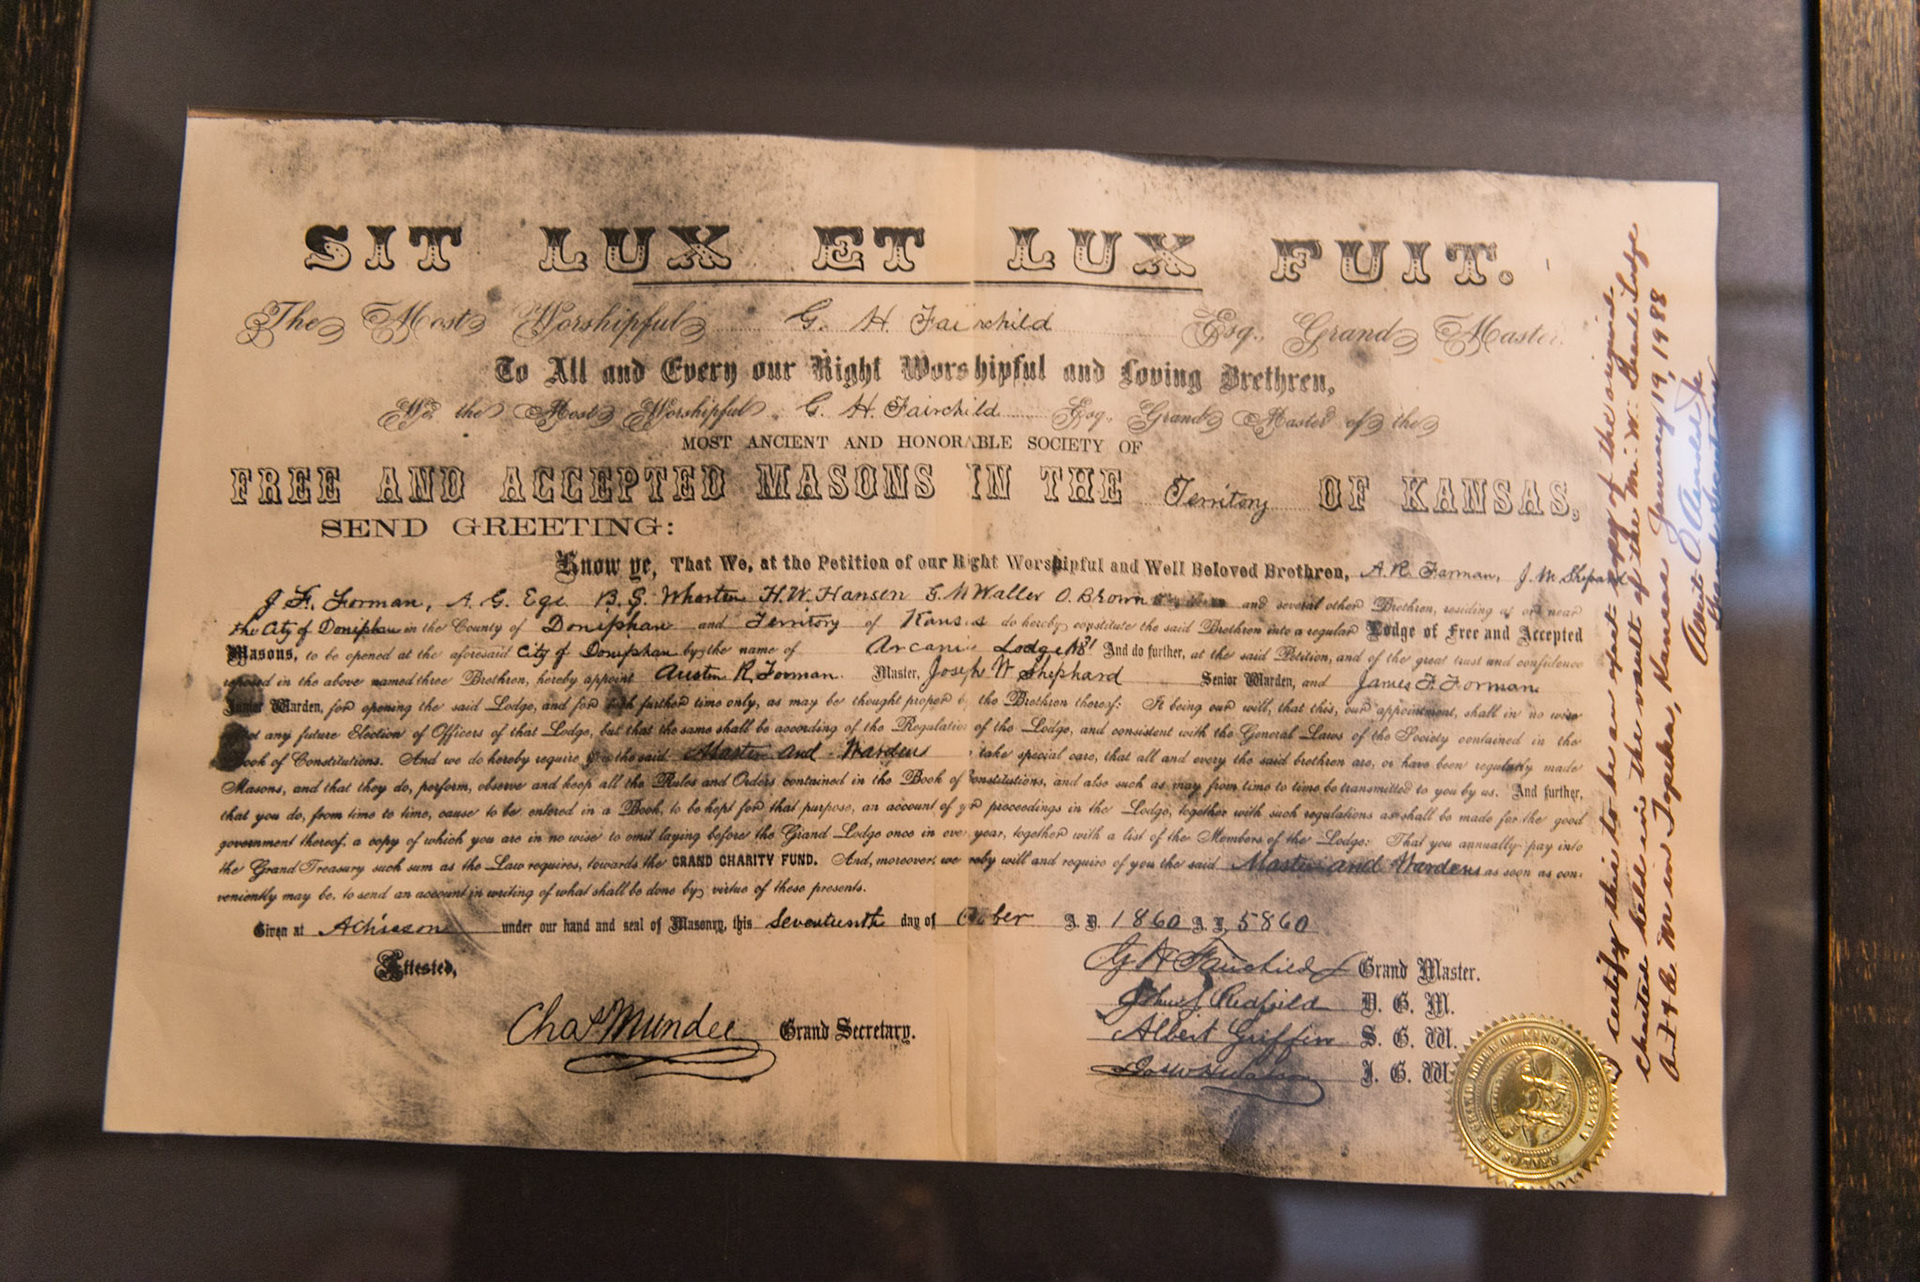 SIT LUX ET LUX FUIT.
The Most Worshipful G. H. Fairchild Esq., Grand Master.
To All and Every our Right Worshipful and Loving Brethren,
We the Most Worshipful G. H. Fairchild Esq. Grand Master of the
MOST ANCIENT AND HONORABLE SOCIETY OF
FREE AND ACCEPTED MASONS IN THE Territory OF KANSAS,
SEND GREETING:
Know ye, That We, at the Petition of our Right Worshipful and Well Beloved Brethren, A. R. Forman, J. W. Shepard
J. F. Forman, A. G. Ege B. S. Wharton H. W. Hansen G. W Waller O. Brown and several other Brethren, residing at or near
the City of Doniphan in the County of Doniphan and Territory of Kansas do hereby constitute the said Brethren into a regular Lodge of Free and Accepted
Masons, to be opened at the aforesaid City of Doniphan by the name of Arcana Lodge And do further, at the said Petition, and of the great trust and confidence
reposed in the above named three Brethren, hereby appoint Austin R. Forman. Master, Joseph W Shephard Senior Warden, and James F. Forman
Junior Warden, for opening the said Lodge, and for further time only, as may be thought proper by the Brethren thereof: It being our will, that this, our appointment, shall in no wise
any future Election of Officers of that Lodge, but that the same shall be according of the Regulations of the Lodge, and consistent with the General Laws of the Society contained in the
Book of Constitutions. And we do hereby require the said Master and Wardens take special care, that all and every the said brethren are, or have been regularly made
Masons, and that they do, perform, observe and keep all the Rules and Orders contained in the Book of Constitutions, and also such as may from time to time be transmitted to you by us. And further,
that you do, from time to time, cause to be entered in a Book, to be kept for that purpose, an account of your proceedings in the Lodge, together with such regulations as shall be made for the good
government thereof, a copy of which you are in no wise to omit laying before the Grand Lodge once in every year, together with a list of the Members of the Lodge: That you annually pay into
the Grand Treasury such sum as the Law requires, towards the GRAND CHARITY FUND. And, moreover, we will and require of you the said Master and Wardens as soon as con-
veniently may be, to send an account in writing of what shall be done by virtue of these presents.
Given at Achison under our hand and seal of Masonry, this Seventeenth day of October A. D. 1860 A. L. 5860
Attested,
G H Fairchild Grand Master.
John J. Redfield D. G. M.
Chas Mundee Grand Secretary.
Albert Griffin S. G. W.
J. G. W.
I certify this to be an exact copy of the original
charter held in the vault of the M. W. Grand Lodge
A. F. & A. M. in Topeka, Kansas January 19, 1988
Grand Secretary